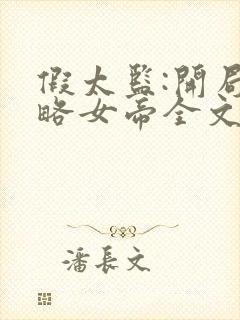 假太监:開局
略女帝全文
潘長文